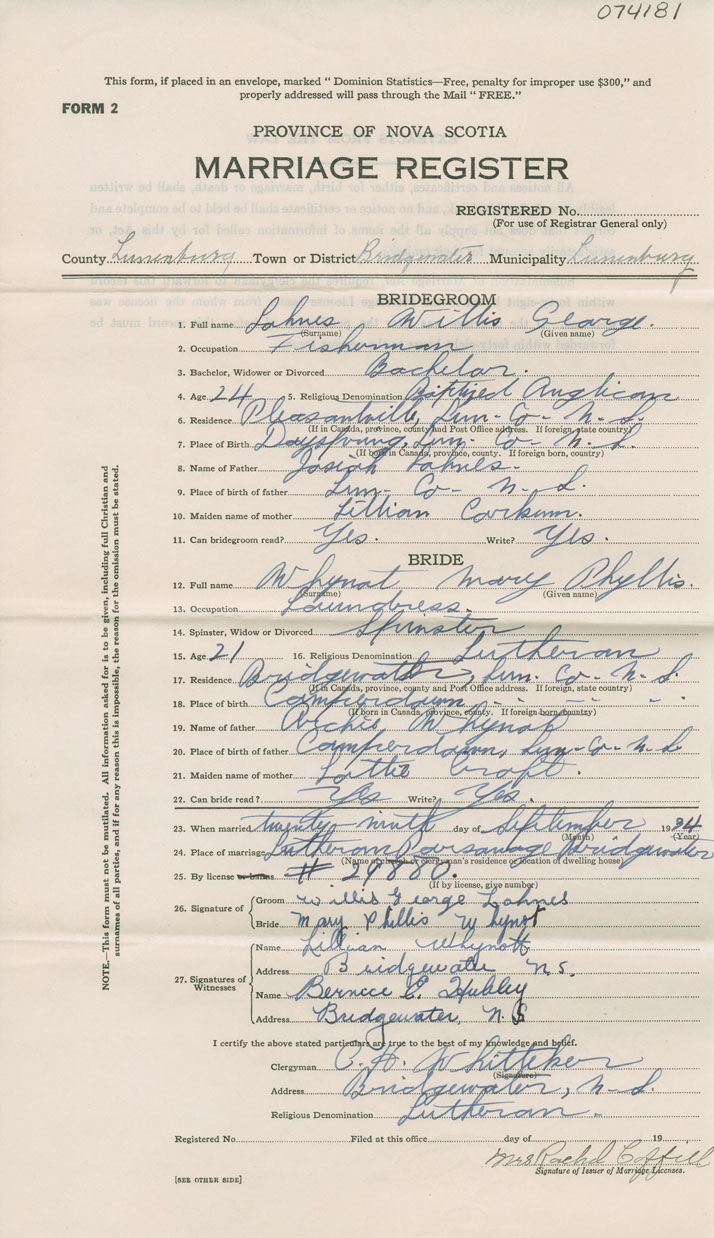 074181
This form, if placed in an envelope, marked " Dominion Statistics—Free, penalty for improper use $300," and
properly addressed will pass through the Mail " FREE."
FORM 2
PROVINCE OF NOVA SCOTIA
MARRIAGE REGISTER
REGISTERED No.
(For use of Registrar General only)
County Lunenburg Town or District Bridgewater Municipality Lunenburg
BRIDEGROOM
1. Full name Lohnes Willis George.
(Surname) (Given name)
2. Occupation Fisherman
3. Bachelor, Widower or Divorced Bachelor.
4. Age 24 5. Religious Denomination Baptized Anglican
6. Residence Pleasantville, Lun- Co- N. S.
(If in Canada, province, county and Post Office address. If foreign, state country)
7. Place of Birth Dayspring, Lun- Co- N. S.
(If born in Canada, province, county. If foreign born, country)
8. Name of Father Josiah Lohnes.
9. Place of birth of father Lun- Co- N. S.
10. Maiden name of mother Lillian Corkum.
11. Can bridegroom read? Yes. Write? Yes.
BRIDE
12. Full name Whynot Mary Phyllis.
(Surname) (Given name)
13. Occupation Laundress.
14. Spinster, Widow or Divorced Spinster
15. Age 21 16. Religious Denomination Lutheran
17. Residence Bridgewater, Lun. Co- N. S.
(If in Canada, province, county and Post Office address. If foreign, state country)
18. Place of birth Camperdown " " "
(If born in Canada, province, county. If foreign born, country)
19. Name of father Archie Whynot
20. Place of birth of father Camperdown, Lun-Co-N-S
21. Maiden name of mother Lottie Croft.
22. Can bride read? Yes Write? Yes.
23. When married twenty-ninth day of September 1934
(Month) (Year)
24. Place of marriage Lutheran Parsonage Bridgewater
(Name of church or clergyman's residence or location of dwelling house)
25. By license or banns # 29880.
(If by license, give number)
26. Signature of
Groom Willis George Lohnes
Bride Mary Phillis Whynot
27. Signatures of Witnesses
Name Lillian Whynott
Address Bridgewater N.S.
Name Bernice E. Hubley
Address Bridgewater, N S
I certify the above stated particulars are true to the best of my knowledge and belief.
Clergyman C. H. Whitteker
(Signature)
Address Bridgewater, N-S.
Religious Denomination Lutheran.
Registered No. Filed at this office day of 19
Mrs Rachel Coffill
Signature of Issuer of Marriage Licenses.
[SEE OTHER SIDE]
NOTE.—This form must not be mutilated. All information asked for is to be given, including full Christian and
surnames of all parties, and if for any reason this is impossible, the reason for the omission must be stated.